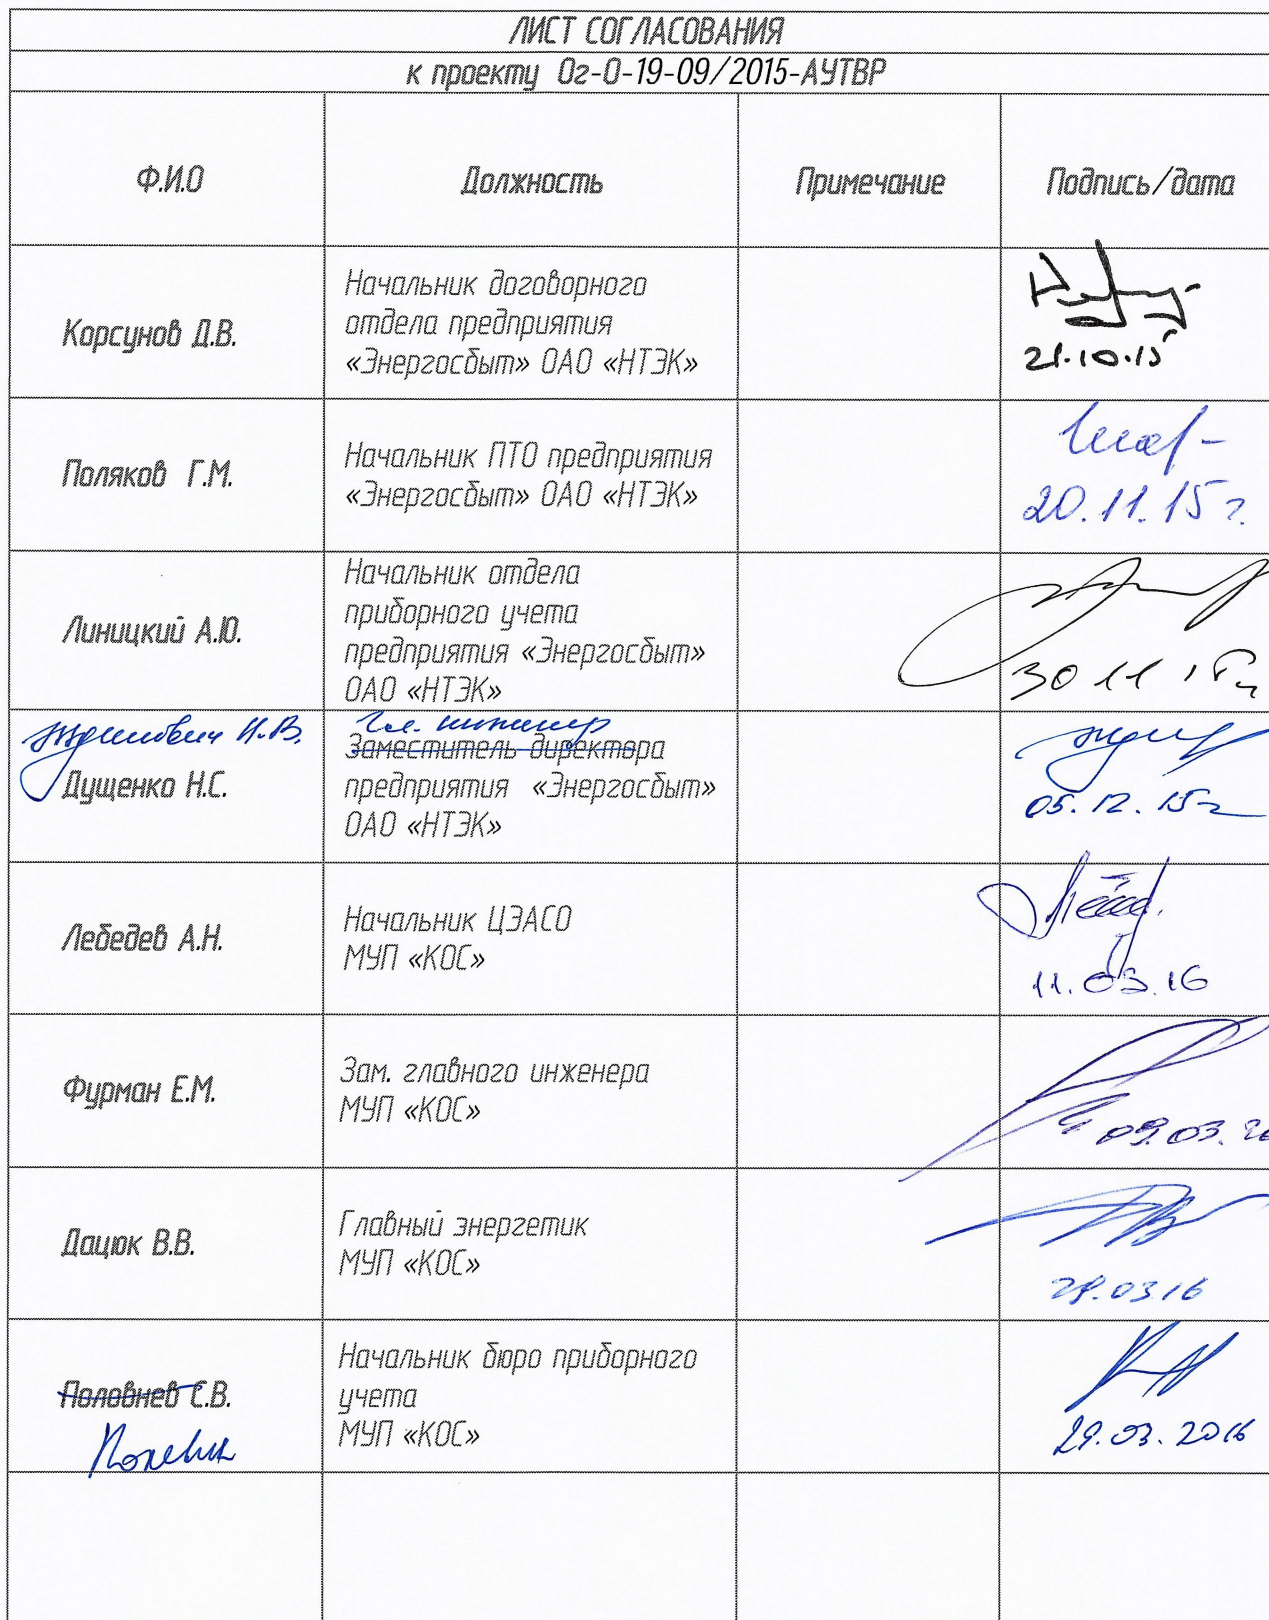 ЛИСТ СОГЛАСОВАНИЯ
к проекту Ог-О-19-09/2015-АУТВР
Ф.И.О
Должность
Примечание
Подпись/дата
Корсунов Д.В.
Начальник договорного
отдела предприятия
«Энергосбыт» ОАО «НТЭК»
21.10.15
Поляков Г.М.
Начальник ПТО предприятия
«Энергосбыт» ОАО «НТЭК»
20.11.15 г.
Линицкий А.Ю.
Начальник отдела
приборного учета
предприятия «Энергосбыт»
ОАО «НТЭК»
30 11 15 г
Н.В.
Дущенко Н.С.
Гл. инженер
Заместитель директора
предприятия «Энергосбыт»
ОАО «НТЭК»
05.12.15г
Лебедев А.Н.
Начальник ЦЭАСО
МУП «КОС»
11.03.16
Фурман Е.М.
Зам. главного инженера
МУП «КОС»
09.03.
Дацюк В.В.
Главный энергетик
МУП «КОС»
03 16
Половнев С.В.
Начальник бюро приборного
учета
МУП «КОС»
29.03.2016